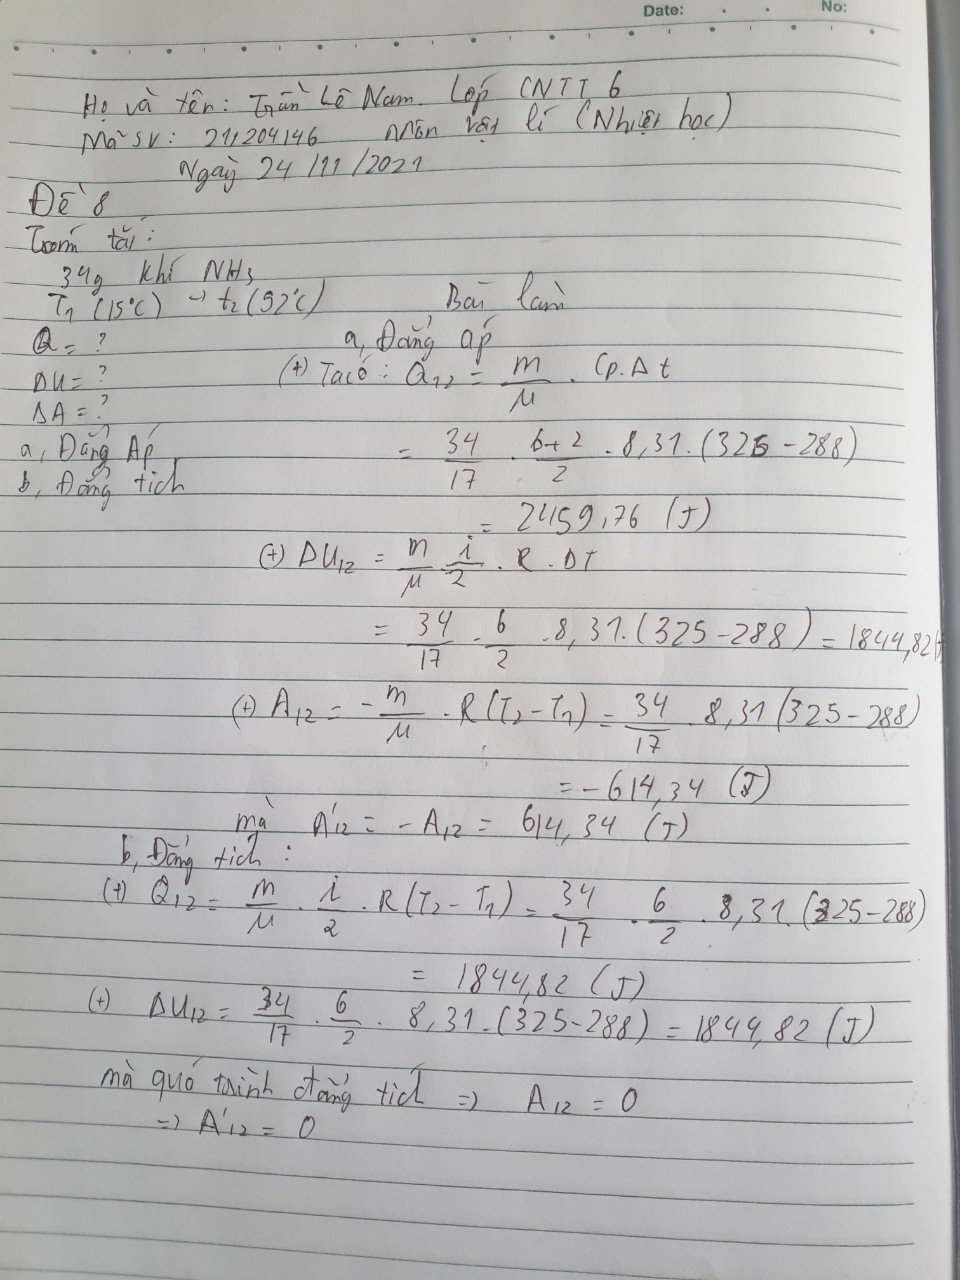 Date: No:
Họ và tên: Trần Lê Nam. Lớp CNTT 6
Mã SV: 21204146 Môn vật lí (Nhiệt học)
Ngày 24/11/2021
Đề 8
Tóm tắt:
34g khí NH3
T1 (15°C) → t2 (52°C)
Bài làm
Q = ?
a, Đẳng áp
ΔU = ?
(+) Ta có: Q12 = m/μ . Cp.Δt
ΔA = ?
a, Đẳng Áp
= 34/17 . 6+2/2 . 8,31.(325 - 288)
b, Đẳng tích
= 2459,76 (J)
(+) ΔU12 = m/μ . i/2 . R . ΔT
= 34/17 . 6/2 . 8,31.(325 - 288) = 1844,82(J
(+) A12 = - m/μ . R(T2 - T1) = 34/17 . 8,31(325 - 288)
= - 614,34 (J)
mà A'12 = - A12 = 614,34 (J)
b, Đẳng tích:
(+) Q12 = m/μ . i/2 . R(T2 - T1) = 34/17 . 6/2 . 8,31.(325 - 288)
= 1844,82 (J)
(+) ΔU12 = 34/17 . 6/2 . 8,31.(325 - 288) = 1844,82 (J)
mà quá trình đẳng tích => A12 = 0
=> A'12 = 0